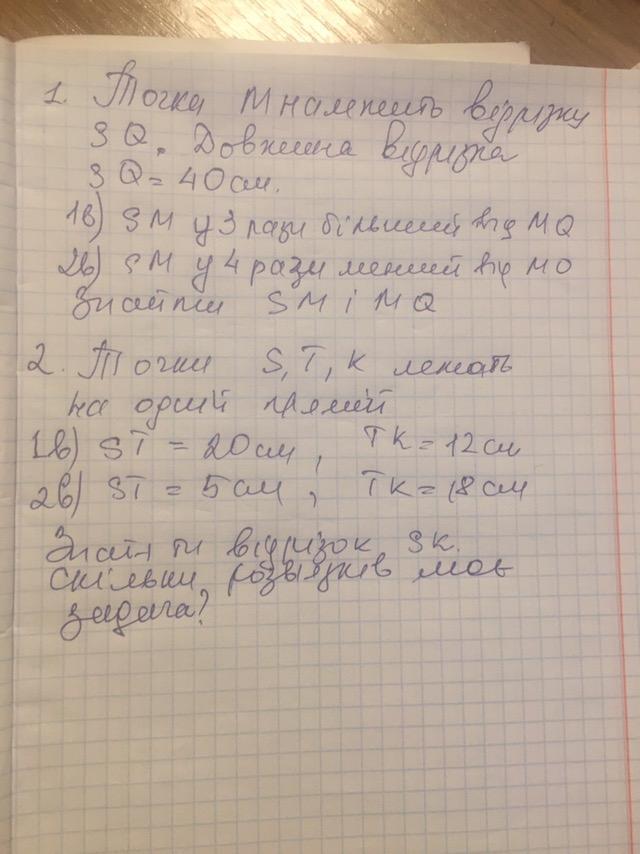 1. Точка M належить відрізку
SQ. Довжина відрізка
SQ = 40 см.
1в) SM у 3 рази більший від MQ
2в) SM у 4 рази менший від MQ
Знайти SM і MQ
2. Точки S, T, K лежать
на одній прямій
1в) ST = 20 см, TK = 12 см
2в) ST = 5 см, TK = 18 см
Знайти відрізок SK.
Скільки розв'язків має
задача?